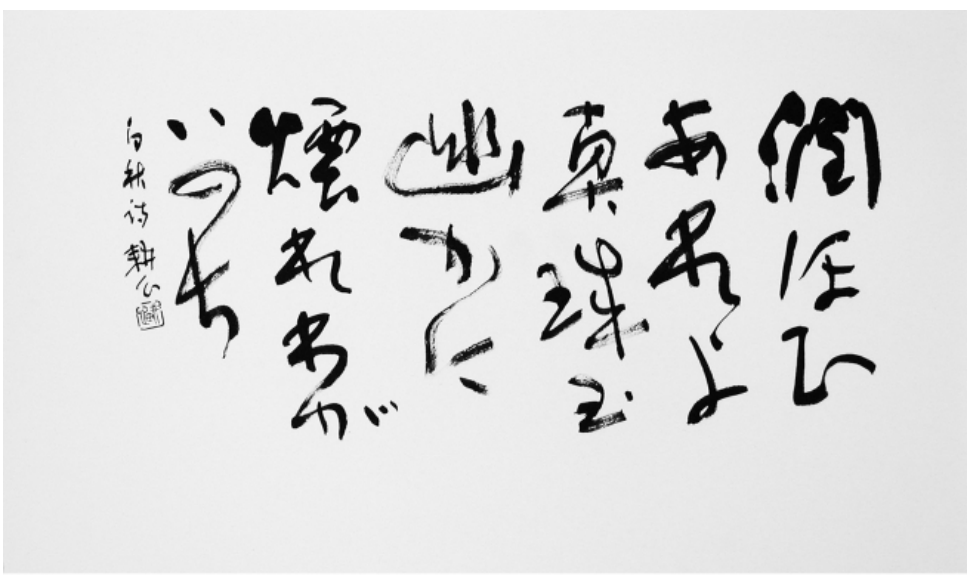 潤ほひ
あれよ
真珠玉
幽かに
煙れわが
いのち
白秋詩 耕公